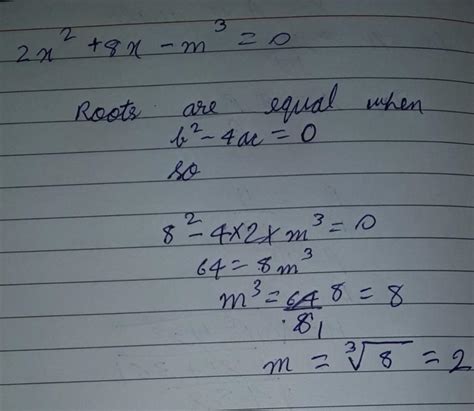 2x² + 8x - m³ = 0
Roots are equal when
b² - 4ac = 0
so
8² - 4 × 2 × m³ = 0
64 = 8m³
m³ = 64 8 = 8
81
m = ∛8 = 2